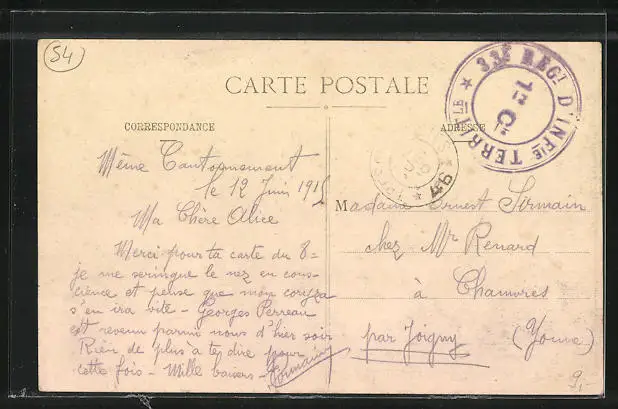 54
CARTE POSTALE
CORRESPONDANCE
ADRESSE
33E REGT D'INFIE TERRLE
1re Cie
Même Cantonnement
le 12 Juin 1915
Ma Chère Alice
Merci pour ta carte du 8 =
je me seringue le nez en cons-
cience et pense que mon coryza
s'en ira vite - Georges Perreau
est revenu parmi nous d'hier soir
Rien de plus à te dire pour
cette fois - Mille baisers -
Madame Ernest Sirmain
chez Mr Renard
à Chamvres
par Joigny (Yonne)
9,-